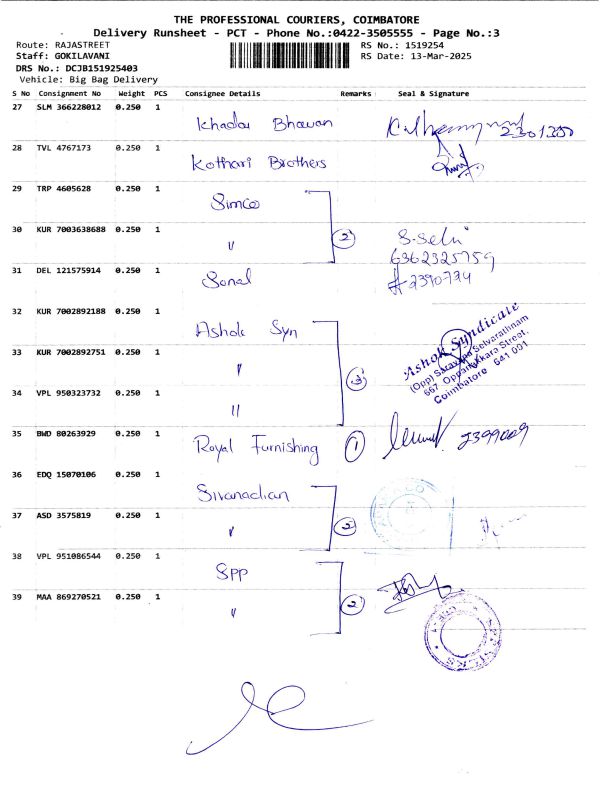 THE PROFESSIONAL COURIERS, COIMBATORE
Delivery Runsheet - PCT - Phone No.:0422-3505555 - Page No.:3
Route: RAJASTREET RS No.: 1519254
Staff: GOKILAVANI RS Date: 13-Mar-2025
DRS No.: DCJB151925403
Vehicle: Big Bag Delivery
S No Consignment No Weight PCS Consignee Details Remarks Seal & Signature
27 SLM 366228012 0.250 1 Khadai Bhavan 2301250
28 TVL 4767173 0.250 1 Kothari Brothers
29 TRP 4605628 0.250 1 Simco
30 KUR 7003638688 0.250 1 " 2 S.Selvi
6362325759
31 DEL 121575914 0.250 1 Sonal 2390774
32 KUR 7002892188 0.250 1 Ashok Syn
Ashok Syndicate
(Opp) Saravana Selvarathnam
667, Oppanakkara Street,
Coimbatore 641 001
33 KUR 7002892751 0.250 1 " 3
34 VPL 950323732 0.250 1 "
35 BWD 80263929 0.250 1 Royal Furnishing 1 2399009
36 EDQ 15070106 0.250 1 Sivanadian
37 ASD 3575819 0.250 1 " 2
38 VPL 951086544 0.250 1 SPP
39 MAA 869270521 0.250 1 " 2